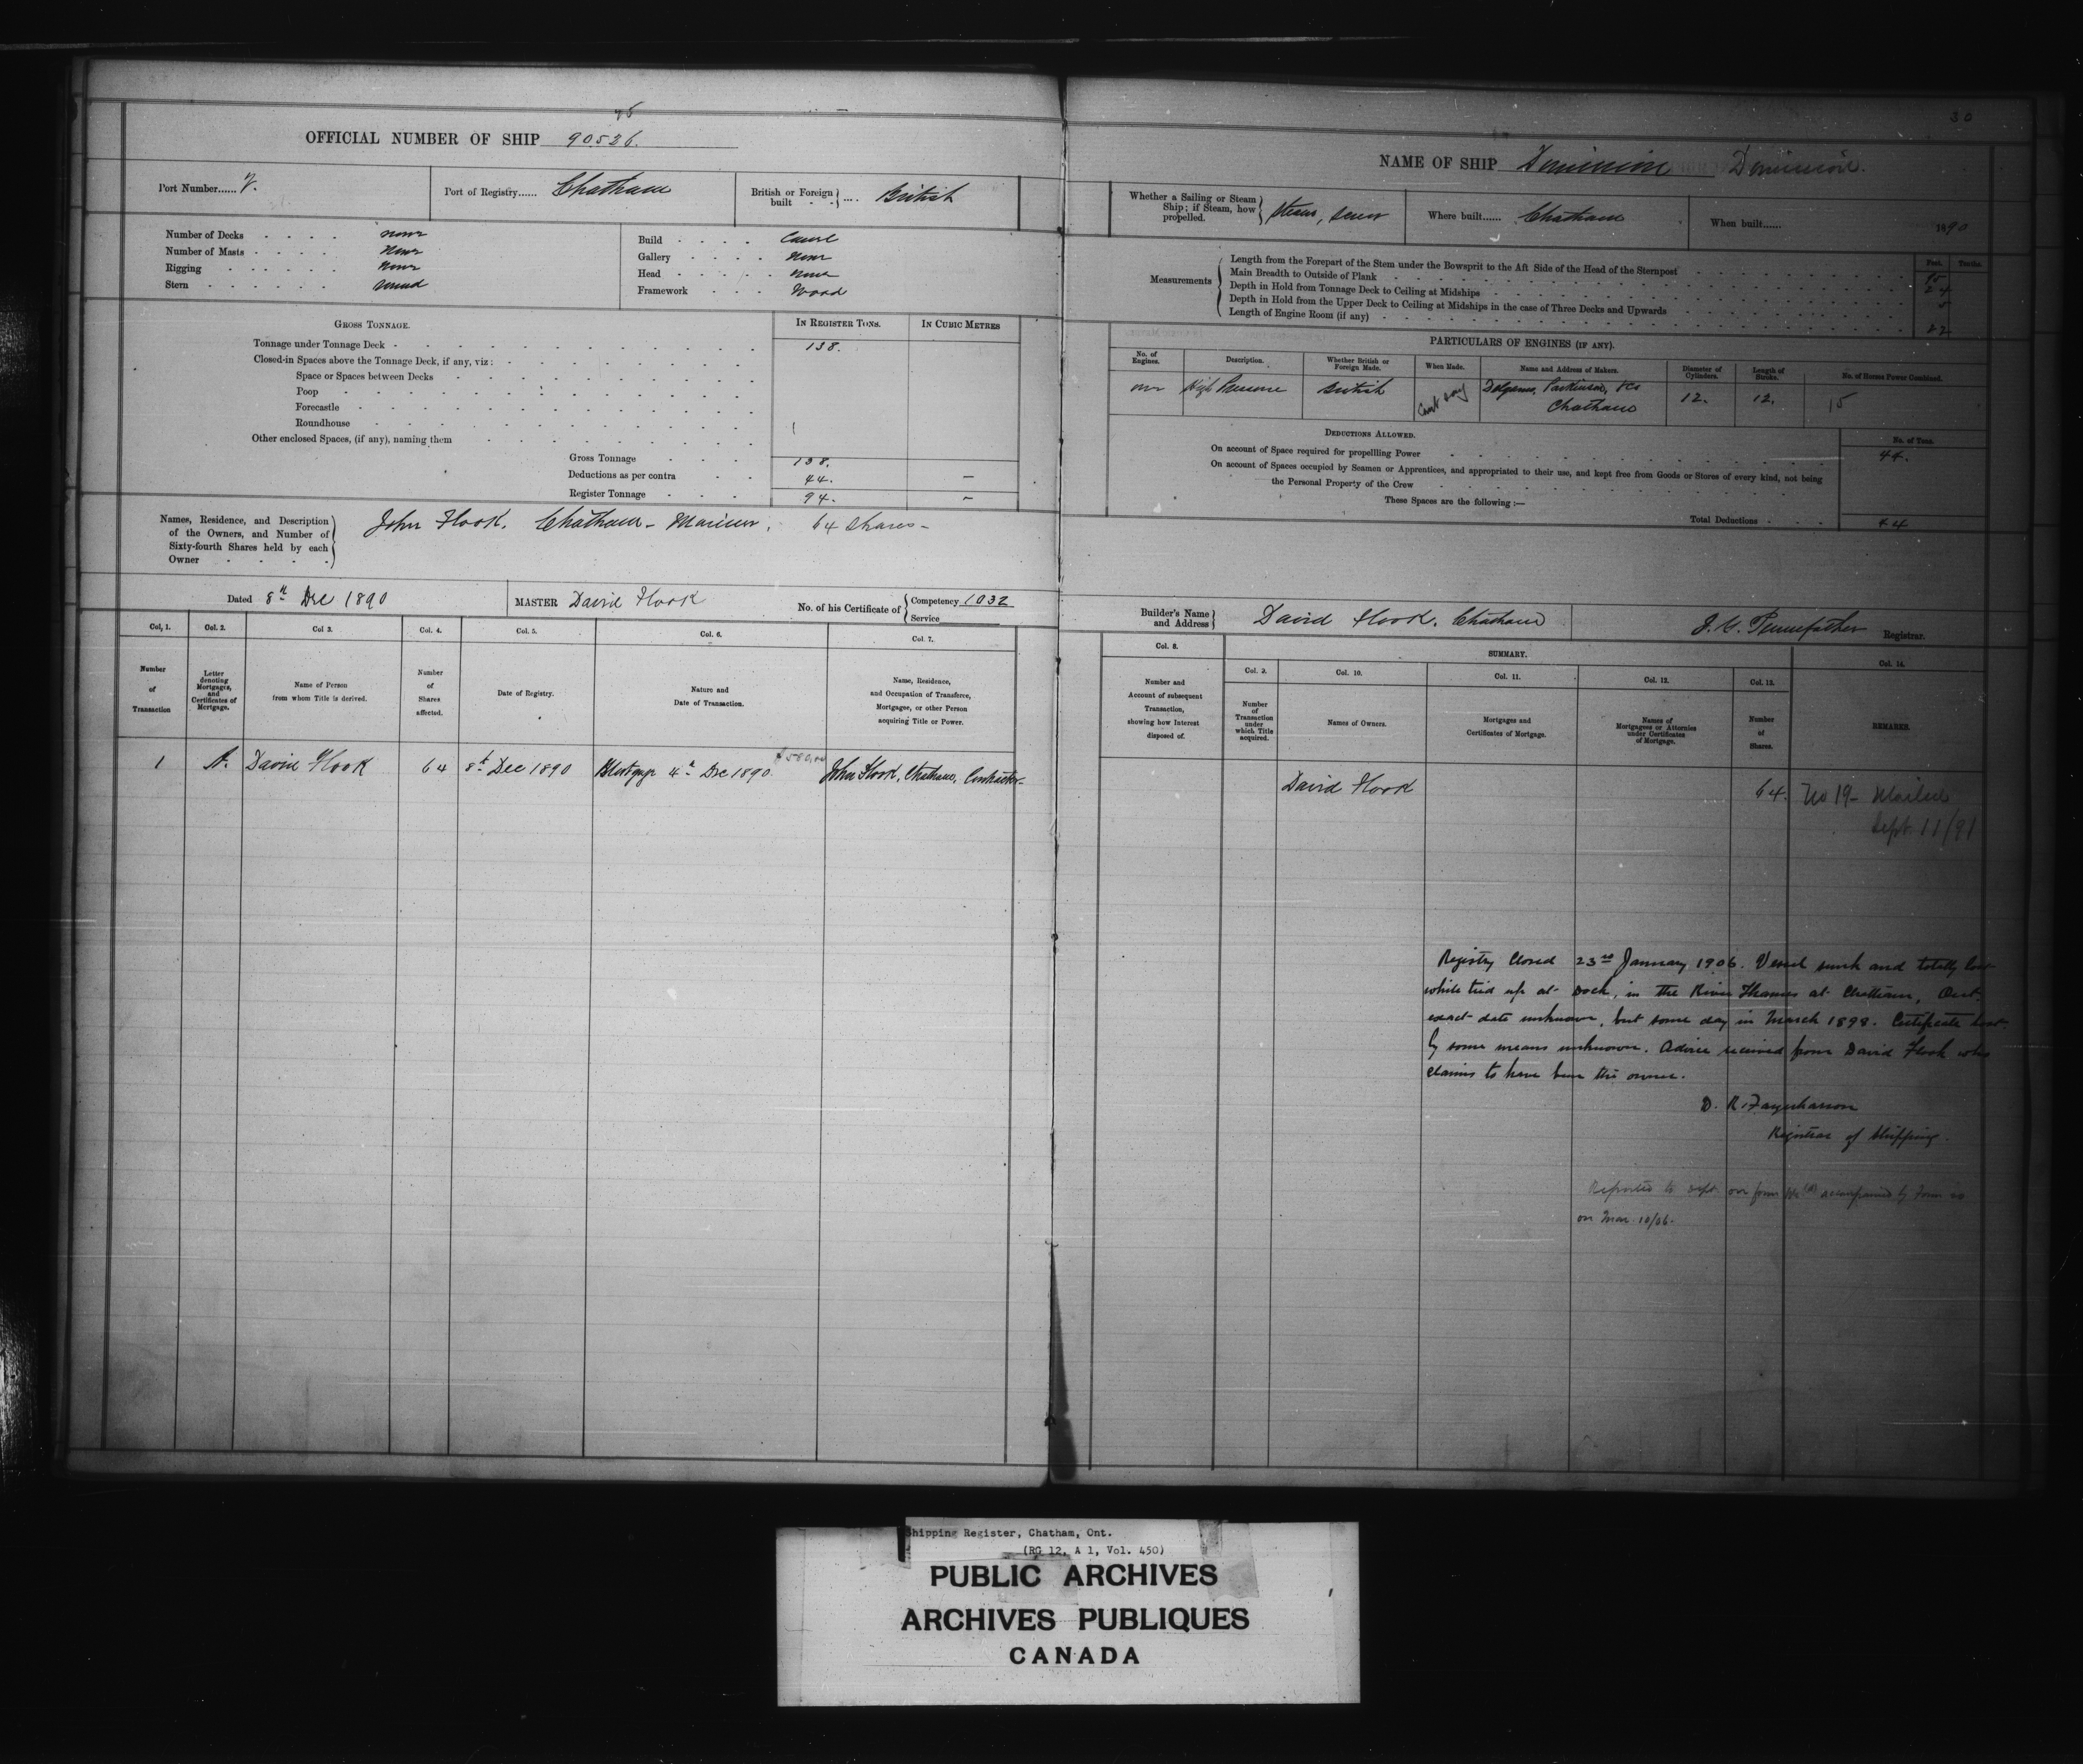 OFFICIAL NUMBER OF SHIP 90536.
Port Number...... 7.
Port of Registry...... Chatham
British or Foreign built .... British
Number of Decks none
Number of Masts None
Rigging None
Stern round
Build Carvel
Gallery None
Head None
Framework Wood
GROSS TONNAGE.
IN REGISTER TONS.
IN CUBIC METRES
Tonnage under Tonnage Deck 138.
Closed-in Spaces above the Tonnage Deck, if any, viz:
Space or Spaces between Decks
Poop
Forecastle
Roundhouse
Other enclosed Spaces, (if any), naming them
Gross Tonnage 138.
Deductions as per contra 44. –
Register Tonnage 94. –
Names, Residence, and Description
of the Owners, and Number of
Sixty-fourth Shares held by each
Owner
John Flook, Chatham - Mariner, 64 Shares -
Dated 8th Dec 1890
MASTER David Flook
No. of his Certificate of Competency 1032
Service
Col. 1. Col. 2. Col 3. Col. 4. Col. 5. Col. 6. Col. 7.
Number of Transaction
Letter denoting Mortgages, and Certificates of Mortgage.
Name of Person from whom Title is derived.
Number of Shares affected.
Date of Registry.
Nature and Date of Transaction.
Name, Residence, and Occupation of Transferee, Mortgagee, or other Person acquiring Title or Power.
1 A. David Flook 64 8th Dec 1890 Mortgage 4th Dec 1890. John Flook, Chatham, Contractor -
30
NAME OF SHIP Dominion Dominion.
Whether a Sailing or Steam Ship; if Steam, how propelled. Steam, Screw
Where built...... Chatham
When built...... 1890
Measurements
Feet. Tenths.
Length from the Forepart of the Stem under the Bowsprit to the Aft Side of the Head of the Sternpost 95
Main Breadth to Outside of Plank 24
Depth in Hold from Tonnage Deck to Ceiling at Midships 5
Depth in Hold from the Upper Deck to Ceiling at Midships in the case of Three Decks and Upwards
Length of Engine Room (if any) 22
PARTICULARS OF ENGINES (IF ANY).
No. of Engines. Description. Whether British or Foreign Made. When Made. Name and Address of Makers. Diameter of Cylinders. Length of Stroke. No. of Horses Power Combined.
one High Pressure British Cant say Parkinson, & Co Chatham 12. 12. 15
DEDUCTIONS ALLOWED.
No. of Tons.
On account of Space required for propellling Power 44.
On account of Spaces occupied by Seamen or Apprentices, and appropriated to their use, and kept free from Goods or Stores of every kind, not being
the Personal Property of the Crew
These Spaces are the following :—
Total Deductions 44
Builder's Name and Address David Flook. Chatham
Pennefather Registrar.
Col. 8.
SUMMARY.
Col. 9. Col. 10. Col. 11. Col. 12. Col. 13. Col. 14.
Number and Account of subsequent Transaction, showing how Interest disposed of.
Number of Transaction under which Title acquired.
Names of Owners.
Mortgages and Certificates of Mortgage.
Names of Mortgagees or Attornies under Certificates of Mortgage.
Number of Shares.
REMARKS.
David Flook 64. No 19 - Mailed
Sept. 11/91
Registry Closed 23rd January 1906. Vessel sunk and totally lost
while tied up at Dock, in the River Thames at Chatham, Ont.
exact date unknown, but some day in March 1898. Certificate lost
by some means unknown. Advice received from David Flook who
claims to have been the owner.
D. R. Farquharson
Registrar of Shipping.
Reported to Dept. on form accompanied by Form
on Mar. 10/06.
Shipping Register, Chatham, Ont.
(RG 12, A 1, Vol. 450)
PUBLIC ARCHIVES
ARCHIVES PUBLIQUES
CANADA